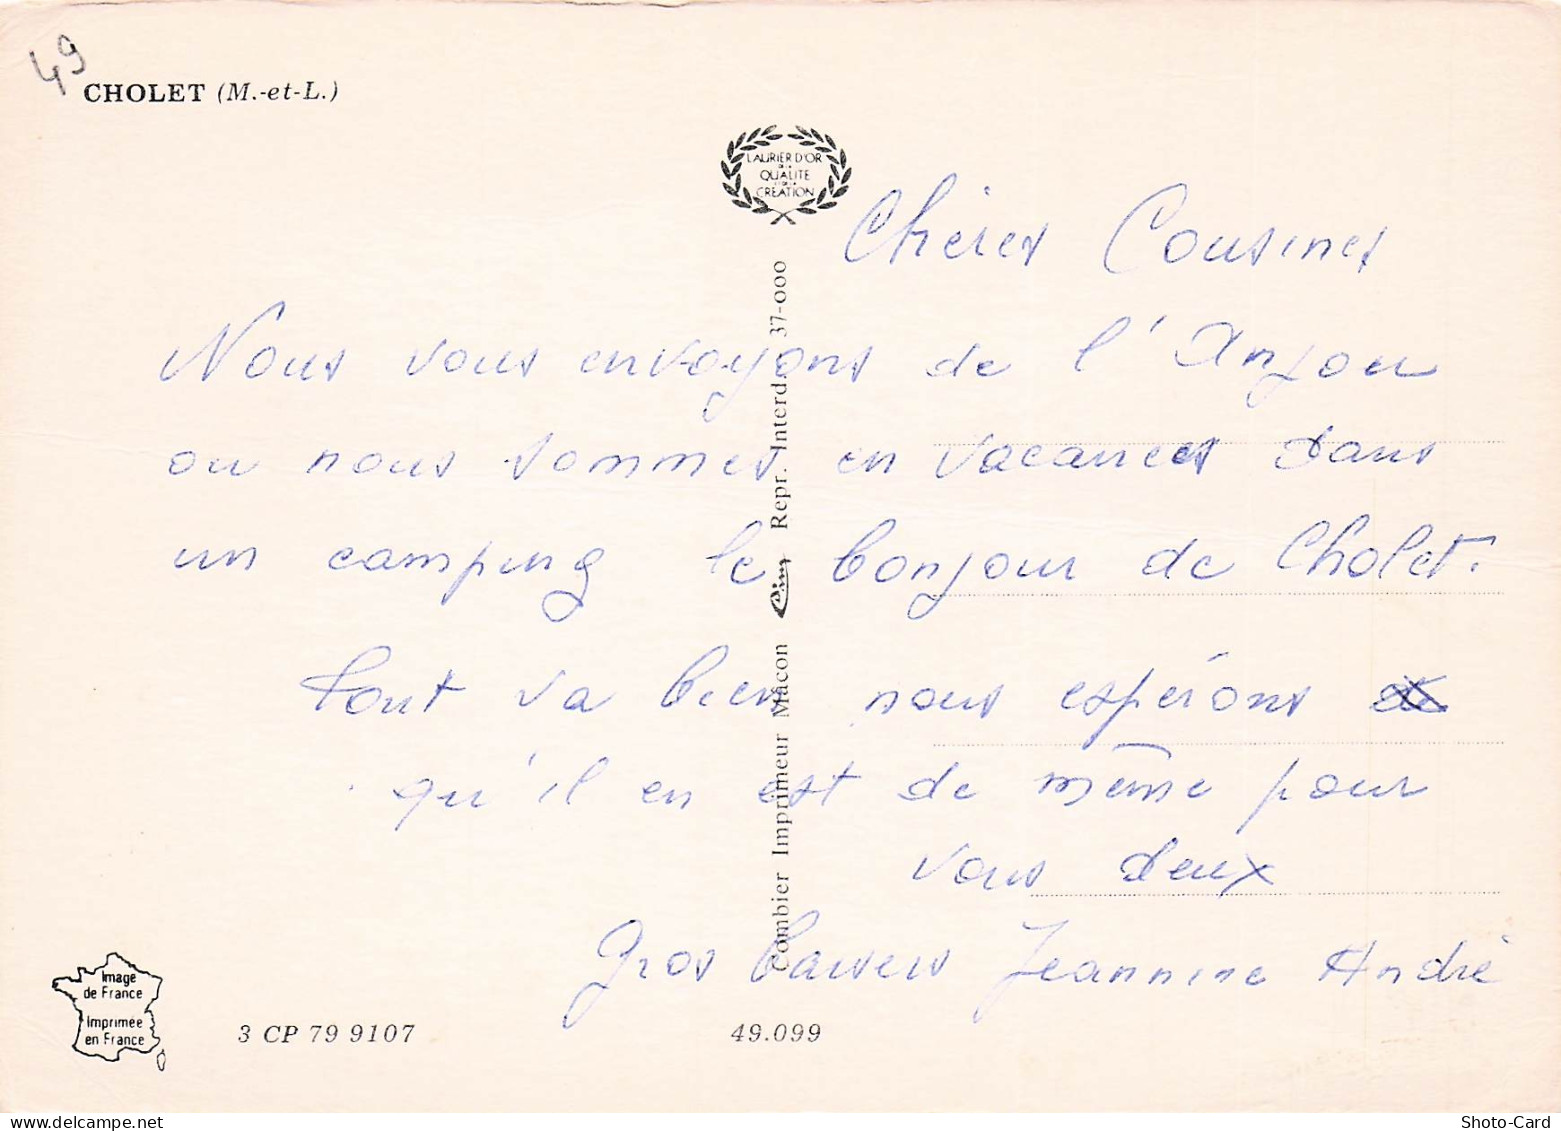 49
CHOLET (M.-et-L.)
LAURIER D'OR
DE LA
QUALITE
ET DE LA
CREATION
Chères Cousines
Nous vous envoyons de l'Anjou
ou nous sommes en vacances dans
un camping le bonjour de Cholet.
Tout va bien nous espérons
qu'il en est de même pour
vous deux
Gros baisers Jeannine André
Combier Imprimeur Mâcon Cim Repr. Interd. 37-000
Image
de France
Imprimée
en France
3 CP 79 9107
49.099
Shoto-Card